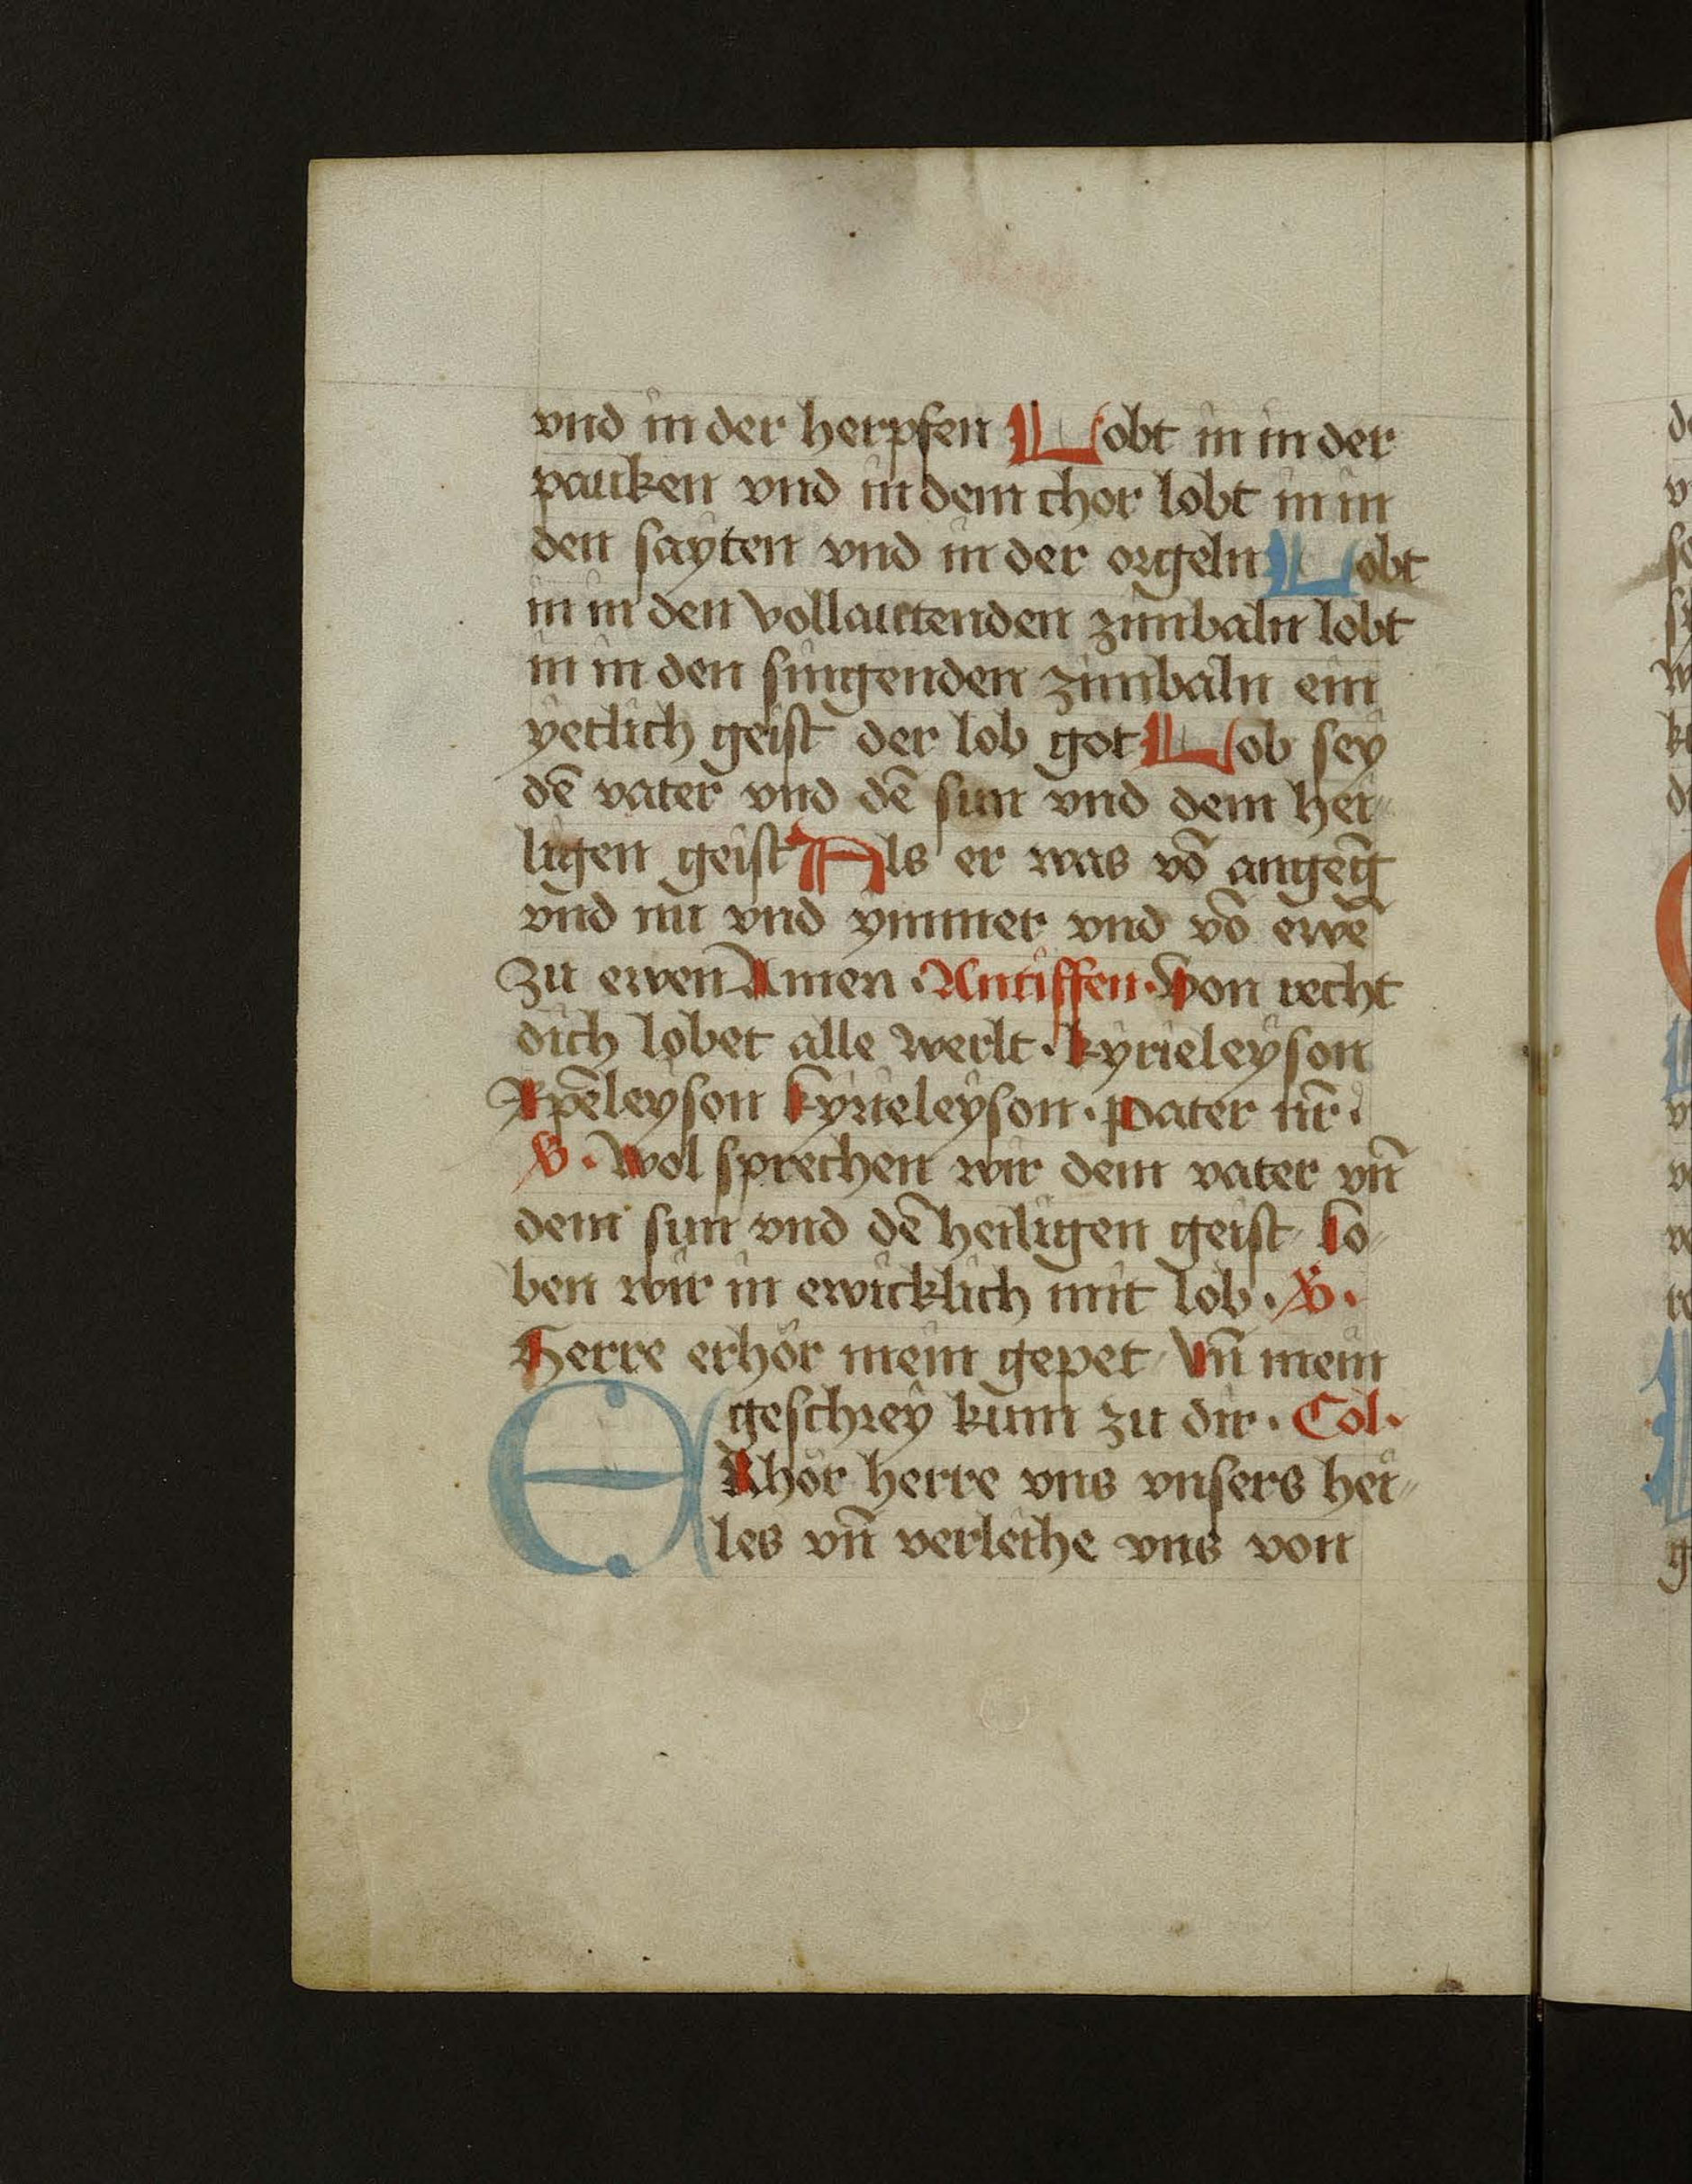 vnd in der herpfen Lobt in in der
pauken vnd in dem chor lobt in in
den sayten vnd in der orgeln Lobt
in in den vollautenden zimbaln lobt
in in den singenden zimbaln ein
yetlich geist der lob got Lob sey
dē vater vnd dē sun vnd dem hei-
ligen geist Als er was vō angeḡ
vnd nu vnd ymmer vnd vō ewē
zu ewen Amen · Antiffen · Von recht
dich lobet alle werlt · kyrieleyson
Xp̄eleyson kyrieleyson · Pater nr̄ ·
V̸ · Wol sprechen wir dem vater vn̄
dem sun vnd dē heiligen geist lo-
ben wir in ewicklich mit lob · V̸ ·
Herre erhör mein gepet Vn̄ mein
geschrey kum zu dir · Col ·
ERhör herre vns vnsers hei-
les vn̄ verleihe vns von